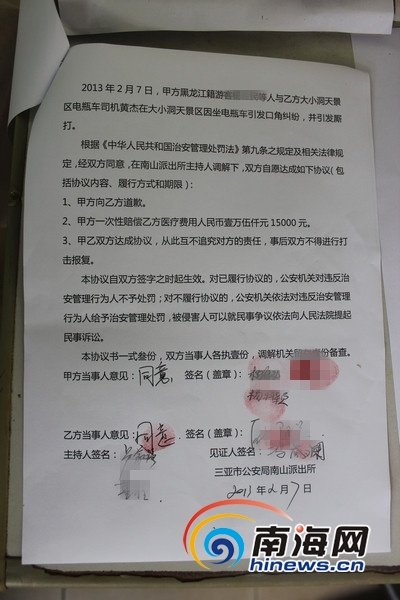 2013年2月7日，甲方黑龙江籍游客 等人与乙方大小洞天景
区电瓶车司机黄杰在大小洞天景区因坐电瓶车引发口角纠纷，并引发厮
打。
根据《中华人民共和国治安管理处罚法》第九条之规定及相关法律规
定，经双方同意，在南山派出所主持人调解下，双方自愿达成如下协议（包
括协议内容、履行方式和期限）：
1、甲方向乙方道歉。
2、甲方一次性赔偿乙方医疗费用人民币壹万伍仟元 15000元。
3、甲乙双方达成协议，从此互不追究对方的责任，事后双方不得进行打
击报复。
本协议自双方签字之时起生效。对已履行协议的，公安机关对违反治
安管理行为人不予处罚；对不履行协议的，公安机关依法对违反治安管理
行为人给予治安管理处罚，被侵害人可以就民事争议依法向人民法院提起
民事诉讼。
本协议书一式叁份，双方当事人各执壹份，调解机关留 份备查。
甲方当事人意见：同意 签名（盖章）：
乙方当事人意见：同意 签名（盖章）：
主持人签名： 见证人签名：
三亚市公安局南山派出所
2013年2月7日
南海网
hinews.cn